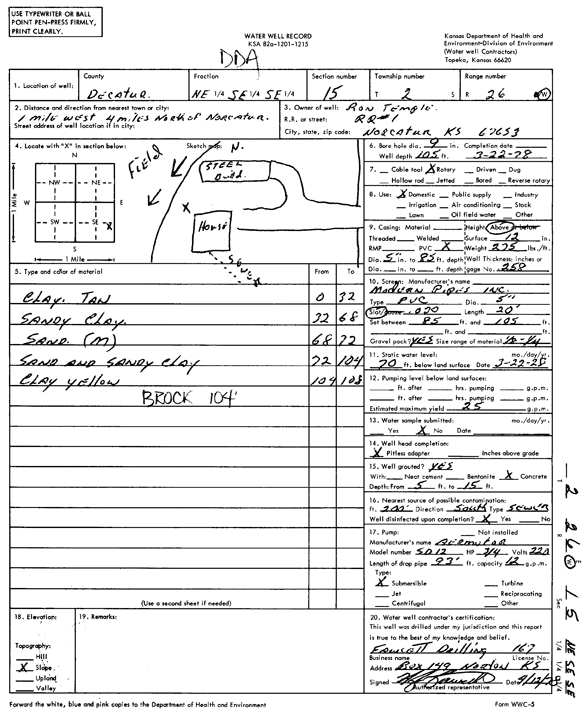 USE TYPEWRITER OR BALL
POINT PEN-PRESS FIRMLY,
PRINT CLEARLY.
WATER WELL RECORD
KSA 82a-1201-1215
Kansas Department of Health and
Environment-Division of Environment
(Water well Contractors)
Topeka, Kansas 66620
DDA
1. Location of well:
County
DECATUR.
Fraction
NE 1/4 SE 1/4 SE 1/4
Section number
15
Township number
T 2 S
Range number
R 26 W
2. Distance and direction from nearest town or city:
1 mile west 4 miles North of Norcatur.
Street address of well location if in city:
3. Owner of well: Ron Temple.
R.R. or street: RR#1
City, state, zip code: Norcatur KS 67653
4. Locate with "X" in section below:
N
NW NE
W E
SW SE X
S
1 Mile
1 Mile
Sketch map: N.
FIELD
STEEL
Build.
X
House
SEWER
5. Type and color of material From To
CLAY. TAN 0 32
SANDY CLAY. 32 68
SAND. (M) 68 72
SAND AND SANDY CLAY 72 104
CLAY YELLOW 104 108
BROCK 104'
(Use a second sheet if needed)
6. Bore hole dia. 9 in. Completion date
Well depth 105 ft. 3-22-78
7. Cable tool X Rotary Driven Dug
Hollow rod Jetted Bored Reverse rotary
8. Use: X Domestic Public supply Industry
Irrigation Air conditioning Stock
Lawn Oil field water Other
9. Casing: Material Height: Above or below
Threaded Welded Surface 12 in.
RMP PVC X Weight 275 lbs./ft.
Dia. 5" in. to 85 ft. depth Wall Thickness: inches or
Dia. in. to ft. depth gage No. 258
10. Screen: Manufacturer's name
MODERN PIPES INC.
Type PVC Dia. 5"
Slot/gauze .030 Length 20'
Set between 85 ft. and 105 ft.
ft. and ft.
Gravel pack? YES Size range of material
11. Static water level: mo./day/yr.
70 ft. below land surface Date 3-22-78
12. Pumping level below land surfaces:
ft. after hrs. pumping g.p.m.
ft. after hrs. pumping g.p.m.
Estimated maximum yield 25 g.p.m.
13. Water sample submitted: mo./day/yr.
Yes X No Date
14. Well head completion:
X Pitless adapter Inches above grade
15. Well grouted? YES
With: Neat cement Bentonite X Concrete
Depth: From 5 ft. to 15 ft.
16. Nearest source of possible contamination:
ft. 200' Direction South Type SEWER
Well disinfected upon completion? X Yes No
17. Pump: Not installed
Manufacturer's name AERMOTOR
Model number SD12 HP 3/4 Volts 220
Length of drop pipe 93' ft. capacity 12 g.p.m.
Type:
X Submersible Turbine
Jet Reciprocating
Centrifugal Other
18. Elevation:
Topography:
Hill
X Slope
Upland
Valley
19. Remarks:
20. Water well contractor's certification:
This well was drilled under my jurisdiction and this report
is true to the best of my knowledge and belief.
Fawcett Drilling 167
Business name License No.
Address Box 149 Norton KS
Signed Date
Authorized representative
Forward the white, blue and pink copies to the Department of Health and Environment
Form WWC-5
T 2 R 26 W Sec 15 1/4 1/4 1/4 NE SE SE